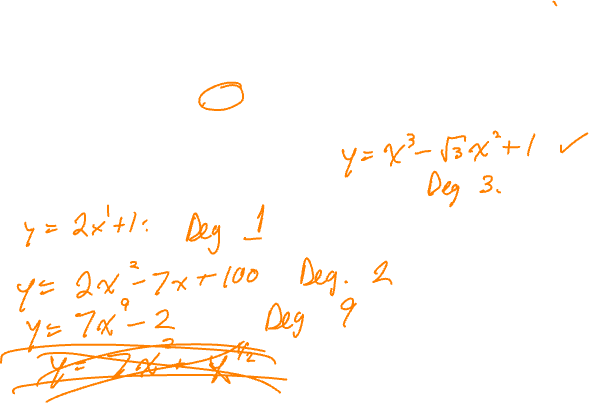 y = x³ - √3 x² + 1 ✓
Deg 3.
y = 2x¹+1: Deg 1
y = 2x² - 7x + 100 Deg. 2
y = 7x⁹ - 2 Deg 9
y = 7x² + x^1/2